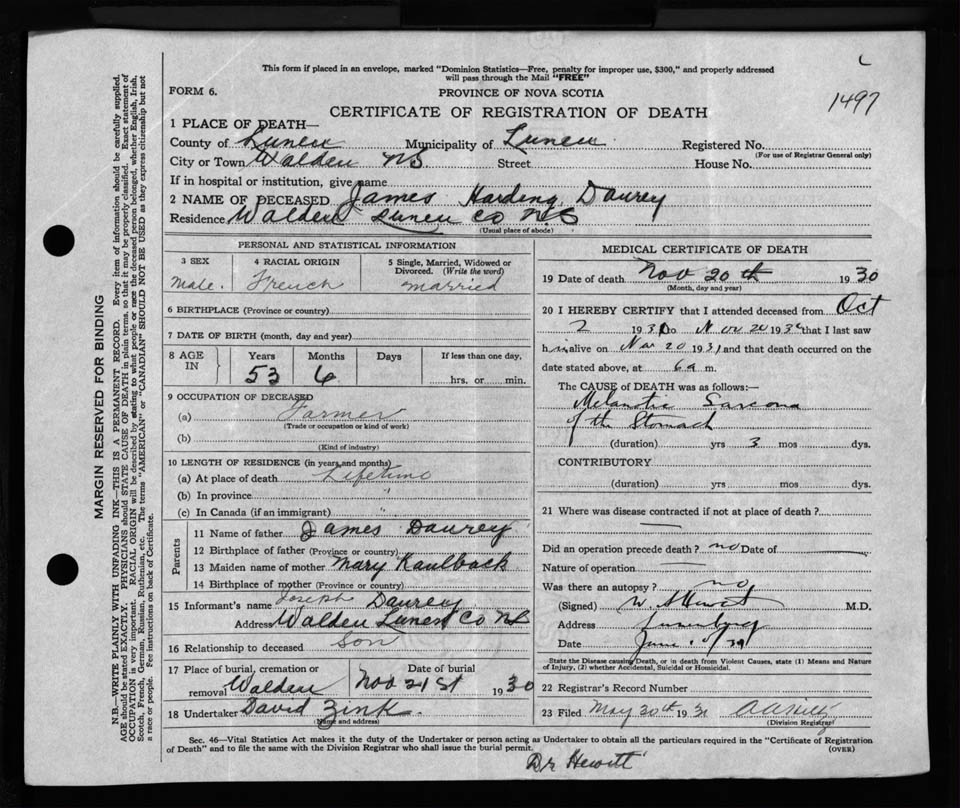 This form if placed in an envelope, marked "Dominion Statistics—Free, penalty for improper use, $300," and properly addressed
will pass through the Mail "FREE"
FORM 6.
PROVINCE OF NOVA SCOTIA
1497
CERTIFICATE OF REGISTRATION OF DEATH
1 PLACE OF DEATH—
County of Lunen Municipality of Lunen Registered No.
(For use of Registrar General only)
City or Town Walden NS Street House No.
If in hospital or institution, give name
2 NAME OF DECEASED James Harding Daurey
Residence Walden Lunen Co N.S
(Usual place of abode)
PERSONAL AND STATISTICAL INFORMATION
3 SEX 4 RACIAL ORIGIN 5 Single, Married, Widowed or
Divorced. (Write the word)
Male. French married
6 BIRTHPLACE (Province or country)
7 DATE OF BIRTH (month, day and year)
8 AGE IN Years Months Days If less than one day,
53 6 hrs. or min.
9 OCCUPATION OF DECEASED
(a) Farmer
(Trade or occupation or kind of work)
(b)
(Kind of industry)
10 LENGTH OF RESIDENCE (in years and months)
(a) At place of death Lifetime
(b) In province "
(c) In Canada (if an immigrant) "
Parents
11 Name of father James Daurey
12 Birthplace of father (Province or country)
13 Maiden name of mother Mary Kaulback
14 Birthplace of mother (Province or country)
15 Informant's name Joseph Daurey
Address Walden Lunen Co NS
16 Relationship to deceased Son
17 Place of burial, cremation or Date of burial
removal Walden Nov 21st 1930
18 Undertaker David Zink.
(Name and address)
MEDICAL CERTIFICATE OF DEATH
19 Date of death Nov 20th 1930
(Month, day and year)
20 I HEREBY CERTIFY that I attended deceased from Oct
2 193 to Nov 20 193 that I last saw
h alive on Nov 20 1931 and that death occurred on the
date stated above, at 6 a m.
The CAUSE of DEATH was as follows:—
Melanotic Sarcoma
of the Stomach
(duration) yrs 3 mos dys.
CONTRIBUTORY
(duration) yrs mos dys.
21 Where was disease contracted if not at place of death?
Did an operation precede death? no Date of
Nature of operation
Was there an autopsy? no
(Signed) W. A Hewitt M.D.
Address Lunenburg
Date June
State the Disease causing Death, or in death from Violent Causes, state (1) Means and Nature
of Injury, (2) whether Accidental, Suicidal or Homicidal.
22 Registrar's Record Number
23 Filed May 30th 1931
(Division Registrar)
Sec. 46—Vital Statistics Act makes it the duty of the Undertaker or person acting as Undertaker to obtain all the particulars required in the "Certificate of Registration
of Death" and to file the same with the Division Registrar who shall issue the burial permit. (OVER)
Dr Hewitt
MARGIN RESERVED FOR BINDING
N.B.—WRITE PLAINLY WITH UNFADING INK—THIS IS A PERMANENT RECORD. Every item of information should be carefully supplied.
AGE should be stated EXACTLY. PHYSICIANS should STATE CAUSE OF DEATH in plain terms, so that it may be properly classified. Exact statement of
OCCUPATION is very important. RACIAL ORIGIN will be described by stating to what people or race the deceased person belonged, whether English, Irish,
Scotch, French, German, Russian, Ruthenian, etc. The terms "AMERICAN" or "CANADIAN" SHOULD NOT BE USED as they express citizenship but not
a race or people. Fee instructions on back of Certificate.